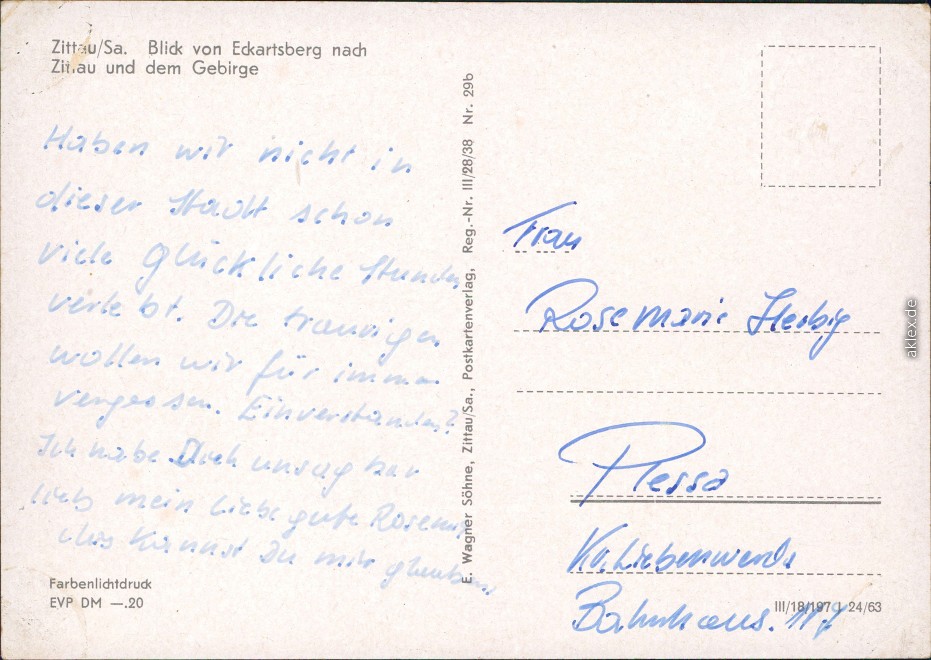 Zittau/Sa. Blick von Eckartsberg nach
Zittau und dem Gebirge
Haben wir nicht in
dieser Stadt schon
viele glückliche Stunden
verlebt. Die traurigen
wollen wir für immer
vergessen. Einverstanden?
Ich habe Dich unsagbar
lieb mein liebe gute Rosemi,
das kannst Du mir glauben
Farbenlichtdruck
EVP DM —.20
E. Wagner Söhne, Zittau/Sa., Postkartenverlag, Reg.-Nr. III/28/38 Nr. 29b
Frau
Rosemarie Herbig
Plessa
Kr. Liebenwerda
Bahnhaus.
III/18/197 24/63
aklex.de